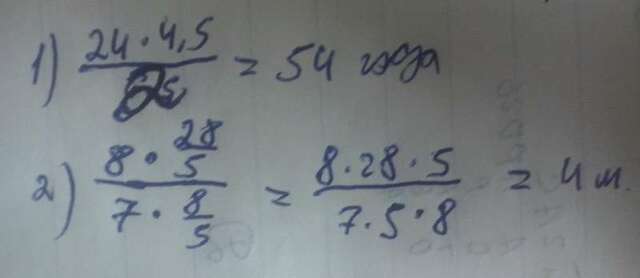 1) 24 · 4,5 / 2 = 54 года
2) 8 · 28/5 / 7 · 8/5 = 8 · 28 · 5 / 7 · 5 · 8 = 4 м.